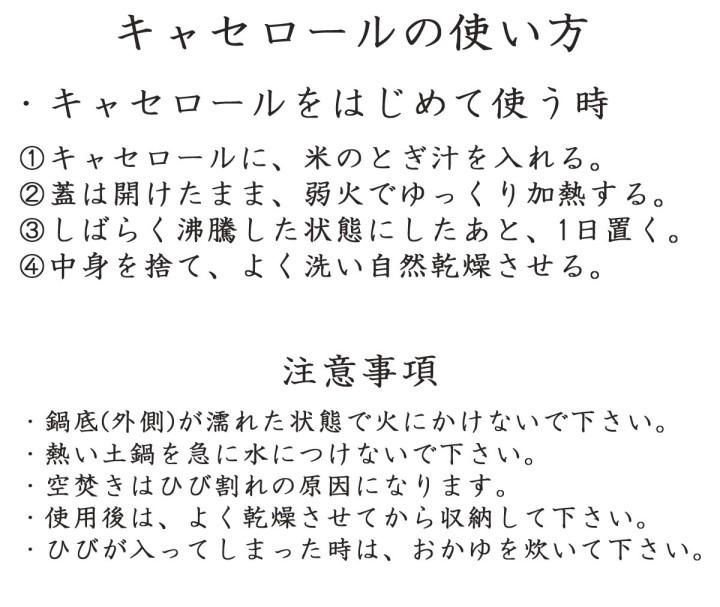 キャセロールの使い方
・キャセロールをはじめて使う時
①キャセロールに、米のとぎ汁を入れる。
②蓋は開けたまま、弱火でゆっくり加熱する。
③しばらく沸騰した状態にしたあと、1日置く。
④中身を捨て、よく洗い自然乾燥させる。
注意事項
・鍋底(外側)が濡れた状態で火にかけないで下さい。
・熱い土鍋を急に水につけないで下さい。
・空焚きはひび割れの原因になります。
・使用後は、よく乾燥させてから収納して下さい。
・ひびが入ってしまった時は、おかゆを炊いて下さい。